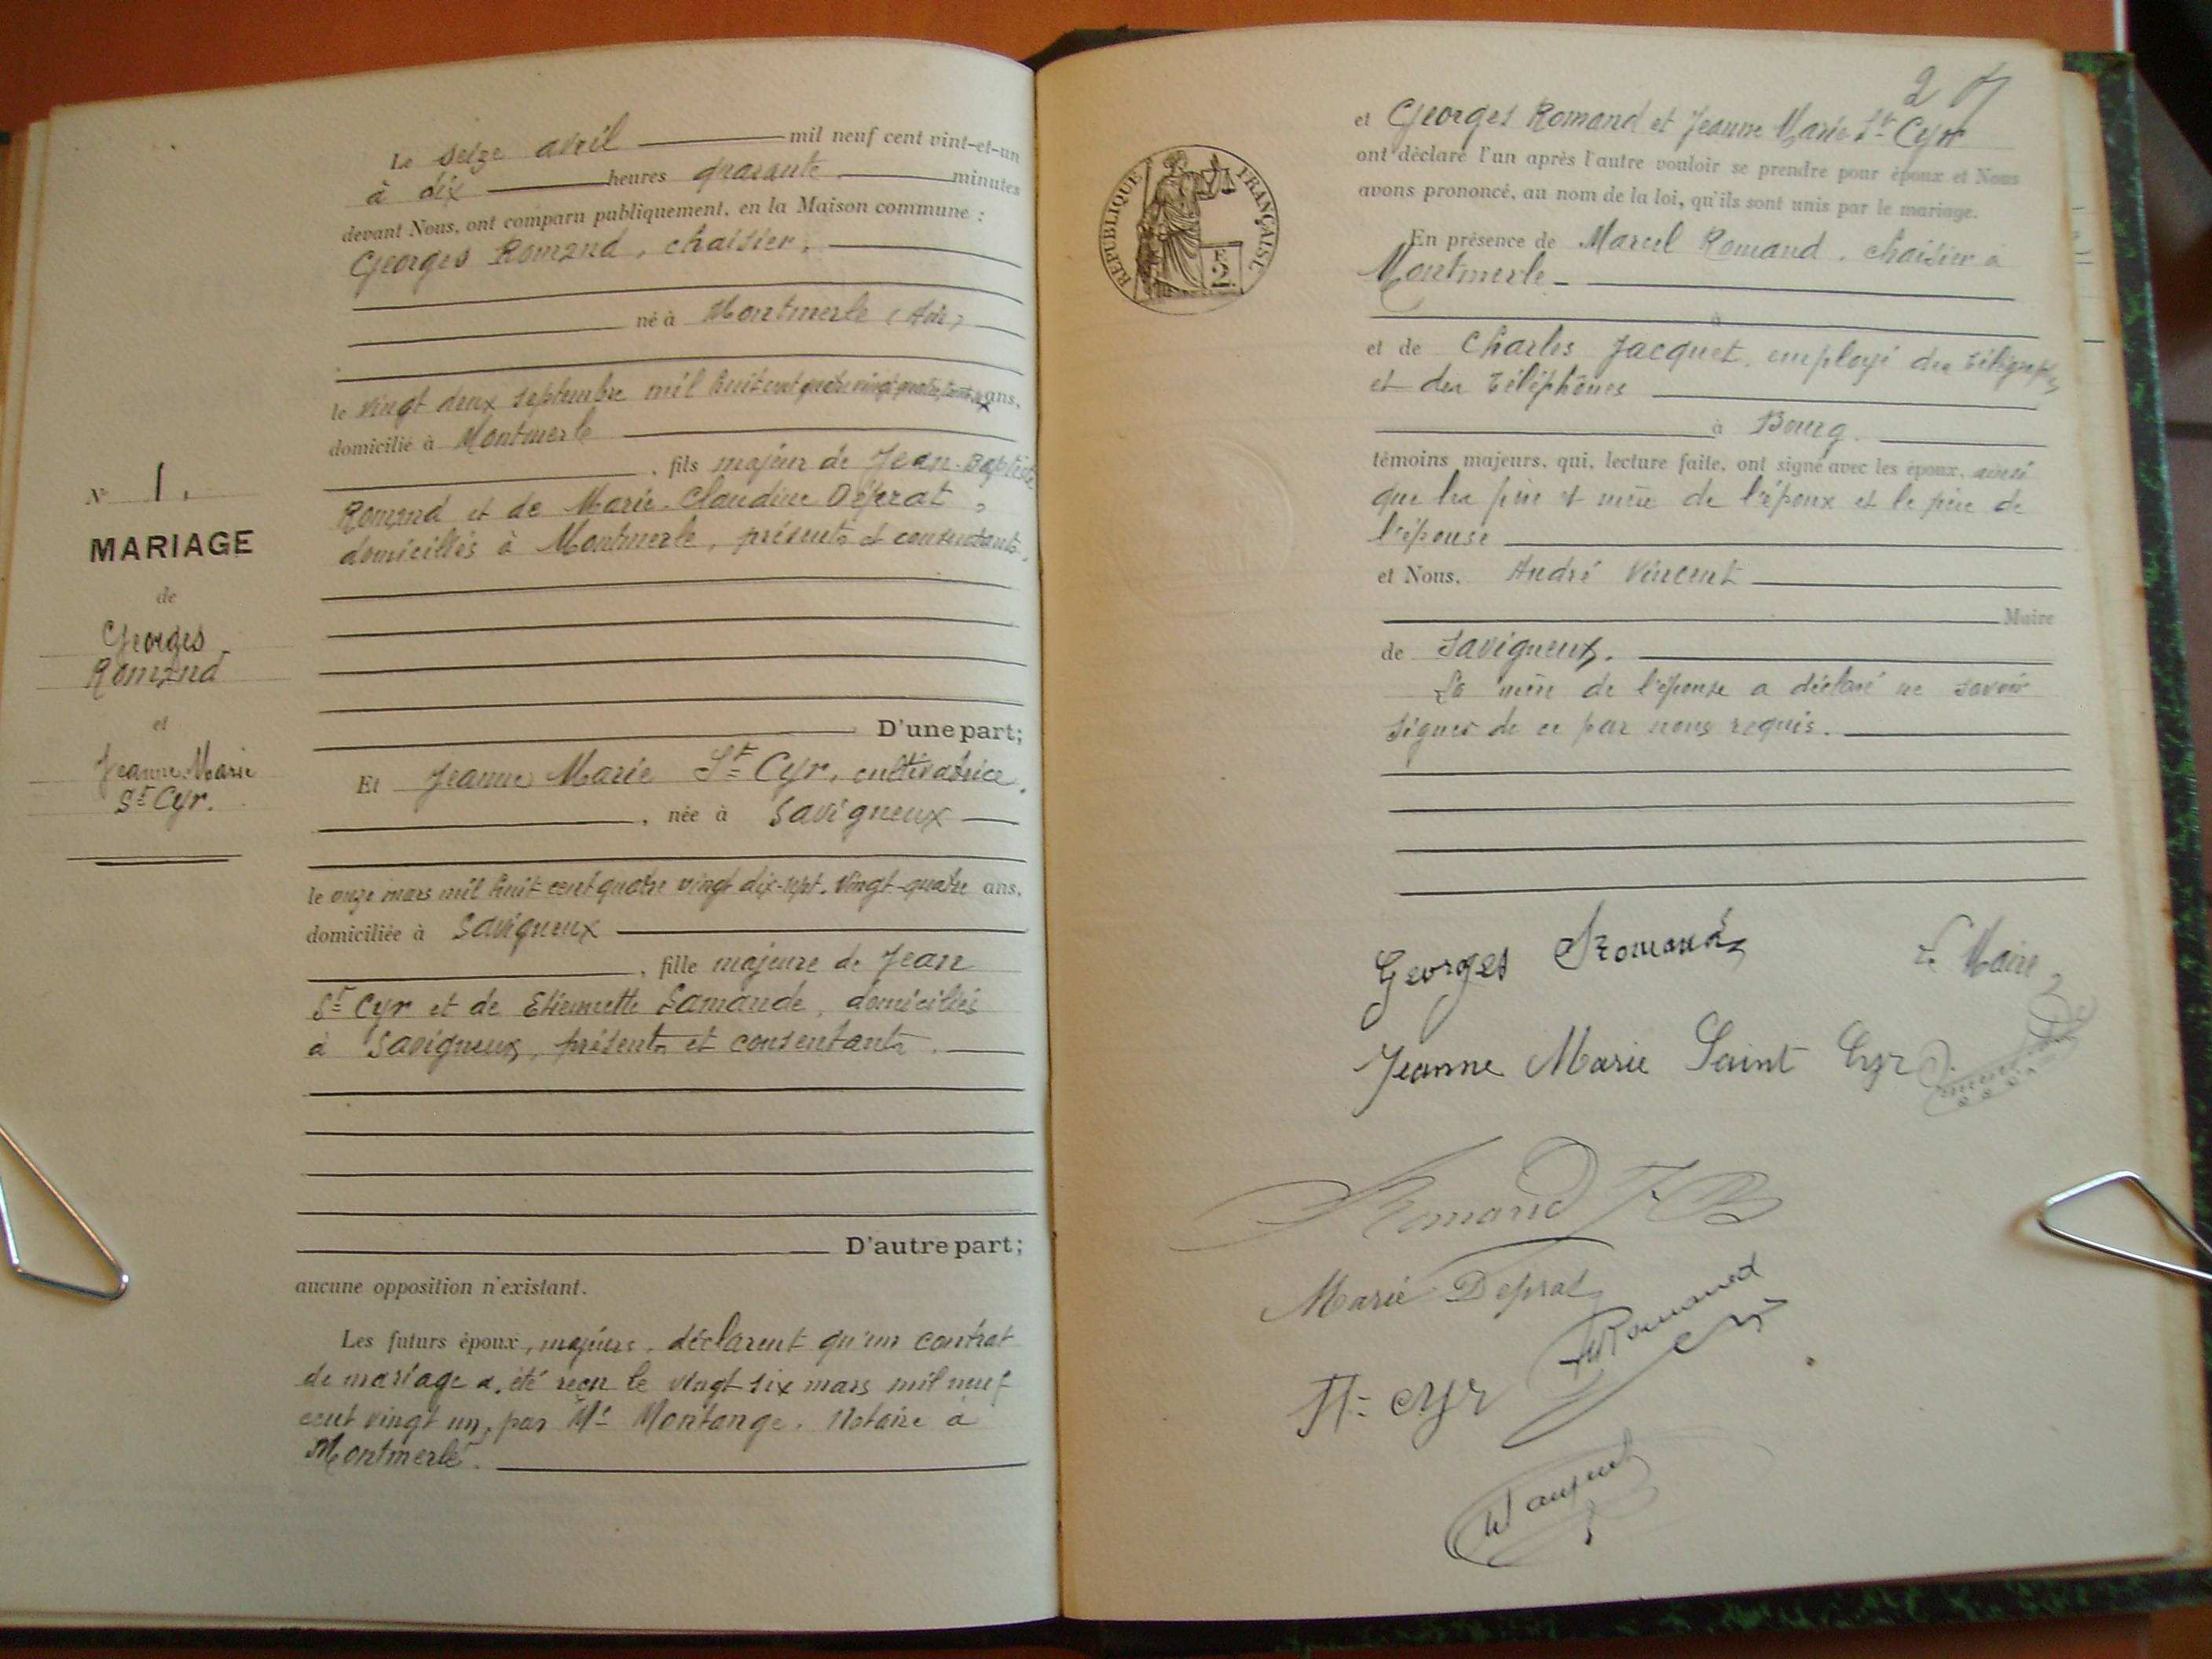 Le seize avril mil neuf cent vint-et-un
à dix heures quarante minutes
devant Nous, ont comparu publiquement, en la Maison commune :
Georges Romand, chaisier,
né à Montmerle (Ain)
le vingt deux septembre mil huit cent quatre vingt quatre, ans,
domicilié à Montmerle
, fils majeur de Jean-Baptiste
Romand et de Marie-Claudine Déprat,
domiciliés à Montmerle, présents et consentants.
N° 1.
MARIAGE
de
Georges
Romand
et
Jeanne-Marie
St Cyr.
D'une part;
Et Jeanne Marie St Cyr, cultivatrice,
, née à Savigneux
le onze mars mil huit cent quatre vingt dix-sept. Vingt-quatre ans,
domiciliée à Savigneux
, fille majeure de Jean
St Cyr et de Etiennette Lamande, domiciliés
à Savigneux, présents et consentants.
D'autre part;
aucune opposition n'existant.
Les futurs époux, majeurs, déclarent qu'un contrat
de mariage a été reçu le vingt six mars mil neuf
cent vingt un, par Me Montange. Notaire à
Montmerle.
2
RÉPUBLIQUE FRANÇAISE
F
2
et Georges Romand et Jeanne Marie St Cyr
ont déclaré l'un après l'autre vouloir se prendre pour époux et Nous
avons prononcé, au nom de la loi, qu'ils sont unis par le mariage.
En présence de Marcel Romand, chaisier à
Montmerle
à
et de Charles Jacquet, employé des télégraphes
et des téléphones
à Bourg.
témoins majeurs, qui, lecture faite, ont signé avec les époux, ainsi
que les père et mère de l'époux et le père de
l'épouse
et Nous, André Vincent
Maire
de Savigneux.
La mère de l'épouse a déclaré ne savoir
signer de ce par nous requis.
Georges Romand
Le Maire,
Jeanne Marie Saint Cyr
Romand J B
Marie Deprat
M Romand
St Cyr